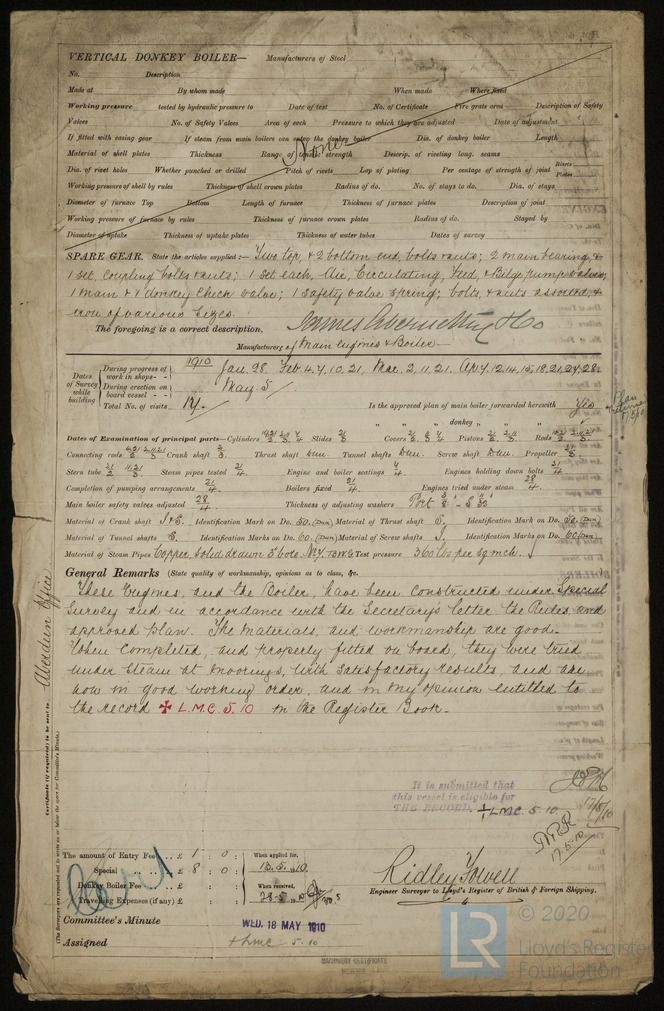 VERTICAL DONKEY BOILER— Manufacturers of Steel
No. Description
Made at By whom made When made Where fixed
Working pressure tested by hydraulic pressure to Date of test No. of Certificate Fire grate area Description of Safety
Valves No. of Safety Valves Area of each Pressure to which they are adjusted Date of adjustment
If fitted with easing gear If steam from main boilers can enter the donkey boiler Dia. of donkey boiler Length
None
Material of shell plates Thickness Range of tensile strength Descrip. of riveting long. seams
Dia. of rivet holes Whether punched or drilled Pitch of rivets Lap of plating Per centage of strength of joint Rivets Plates
Working pressure of shell by rules Thickness of shell crown plates Radius of do. No. of stays to do. Dia. of stays
Diameter of furnace Top Bottom Length of furnace Thickness of furnace plates Description of joint
Working pressure of furnace by rules Thickness of furnace crown plates Radius of do. Stayed by
Diameter of uptake Thickness of uptake plates Thickness of water tubes Dates of survey
SPARE GEAR. State the articles supplied:— Two top, & 2 bottom end, bolts & nuts; 2 main bearing, &
1 set, coupling bolts & nuts; 1 set each, Air, Circulating, Feed, & Bilge pump valves;
1 main & 1 donkey check valve; 1 safety valve spring; bolts, & nuts assorted, &
iron of various sizes.
The foregoing is a correct description,
James Abernethy & Co
Manufacturer of Main engines & Boiler—
Dates of Survey while building
During progress of work in shops - - 1910 Jan. 28. Feb 4, 7, 10, 21, Mar. 2, 11, 21. Ap. 7, 12, 14, 15, 18, 21, 27, 28.
During erection on board vessel - - May 5
Total No. of visits 17.— Is the approved plan of main boiler forwarded herewith Yes
" " " donkey " " "
Dates of Examination of principal parts—Cylinders Slides Covers Pistons Rods
Connecting rods Crank shaft Thrust shaft Dun. Tunnel shafts Dun. Screw shaft Dun. Propeller
Stern tube Steam pipes tested 21/4 Engine and boiler seatings 4/4 Engines holding down bolts 21/4
Completion of pumping arrangements 21/4 Boilers fixed 21/4 Engines tried under steam 28/4.
Main boiler safety valves adjusted 28/4 Thickness of adjusting washers
Material of Crank shaft Identification Mark on Do. 60. (Dun) Material of Thrust shaft S, Identification Mark on Do. 60. (Dun)
Material of Tunnel shafts S. Identification Marks on Do. 60. (Dun) Material of Screw shafts S, Identification Marks on Do. 60 (Dun)
Material of Steam Pipes Copper, solid drawn 3" bore. No. 7, I.S.W.G. Test pressure 360 lbs per sq inch.
General Remarks (State quality of workmanship, opinions as to class, &c.
These Engines, and the Boiler, have been constructed under Special
Survey and in accordance with the Secretary's letter the Rules, and
approved plan. The materials, and workmanship are good.—
When completed, and properly fitted on board, they were tried
under steam at moorings, with satisfactory results, and are
now in good working order, and in my opinion entitled to
the record ✠ L.M.C. 5.10 in the Register Book.
Certificate (if required) to be sent to Aberdeen Office
(The Surveyors are requested not to write on or below the space for Committee's Minute.)
It is submitted that
this vessel is eligible for
THE RECORD. + LMC 5.10.
17/5/10
17.5.10
The amount of Entry Fee .. £ 1 : 0 : When applied for,
Special .. £ 8 : 0 : 13.5.10.
Donkey Boiler Fee .. £ : : When received,
Travelling Expenses (if any) £ : : 28-5-10
Ridley Towell
Engineer Surveyor to Lloyd's Register of British & Foreign Shipping.
Committee's Minute WED. 18 MAY 1910
Assigned + LMC 5.10
MACHINERY CERTIFICATE
LR © 2020
Lloyd's Register
Foundation